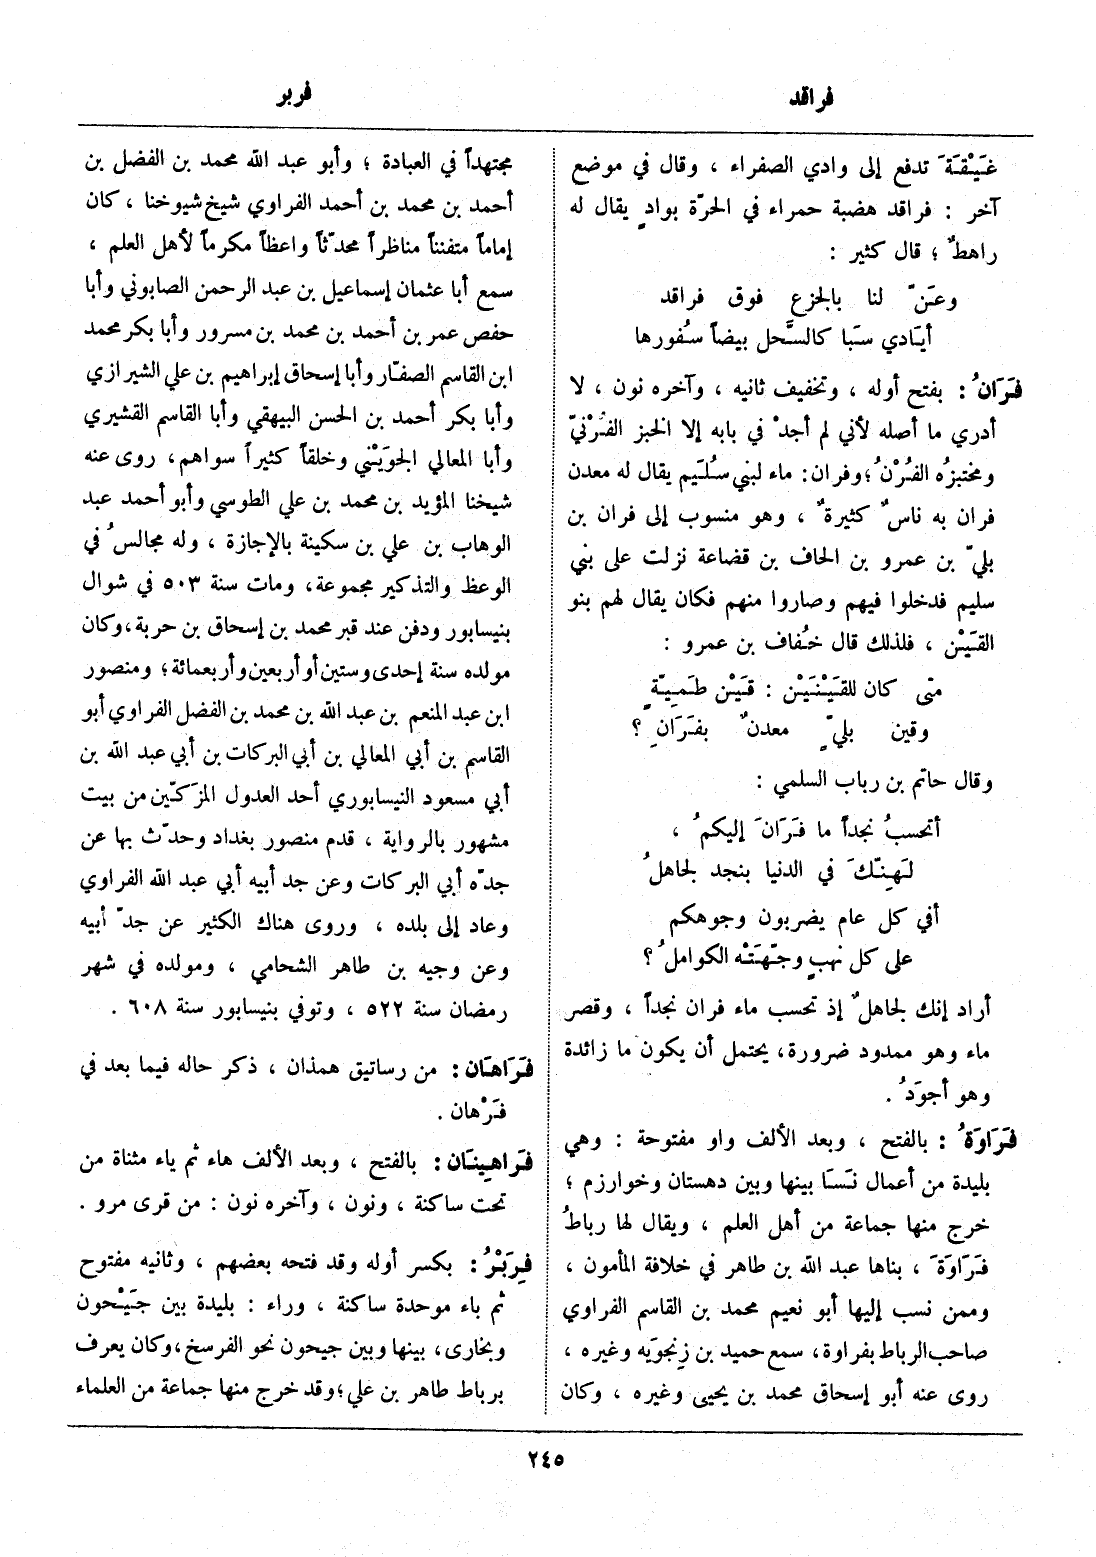 فراقد
فربر
غَيْقَةَ تدفع إلى وادي الصفراء ، وقال في موضع
آخر : فراقد هضبة حمراء في الحرّة بوادٍ يقال له
راهطٌ ؛ قال كثير :
وعَنّ لنا بالجزع فوق فراقد
أيَادي سَبا كالسَّحل بيضاً سُفورها
فَرَانُ : بفتح أوله ، وتخفيف ثانيه ، وآخره نون ، لا
أدري ما أصله لأني لم أجدْ في بابه إلا الخبز الفُرْنيّ
ومختبزُه الفُرْنُ ؛ وفران : ماء لبني سُلَيم يقال له معدن
فران به ناسٌ كثيرةٌ ، وهو منسوب إلى فران بن
بليّ بن عمرو بن الحاف بن قضاعة نزلت على بني
سليم فدخلوا فيهم وصاروا منهم فكان يقال لهم بنو
القَيْن ، فلذلك قال خُفاف بن عمرو :
متى كان للقَيْنَيْن : قَيْن طَمِيّةٍ
وقين بليٍّ معدنٌ بفَرَانِ ؟
وقال حاتم بن رباب السلمي :
أتحسبُ نجداً ما فَرَانَ إليكمُ ،
لَهِنّكَ في الدنيا بنجد لجاهلُ
أفي كل عام يضربون وجوهكم
على كل نهبٍ وجّهَتْه الكوامل ُ؟
أراد إنك لجاهلٌ إذ تحسب ماء فران نجداً ، وقصر
ماء وهو ممدود ضرورة ، يحتمل أن يكون ما زائدة
وهو أجوَدُ .
فَرَاوَةُ : بالفتح ، وبعد الألف واو مفتوحة : وهي
بليدة من أعمال نَسَا بينها وبين دهستان وخوارزم ؛
خرج منها جماعة من أهل العلم ، ويقال لها رباطُ
فَرَاوَةَ ، بناها عبد الله بن طاهر في خلافة المأمون ،
وممن نسب إليها أبو نعيم محمد بن القاسم الفراوي
صاحب الرباط بفراوة ، سمع حميد بن زِنجوَيه وغيره ،
روى عنه أبو إسحاق محمد بن يحيى وغيره ، وكان
مجتهداً في العبادة ؛ وأبو عبد الله محمد بن الفضل بن
أحمد بن محمد بن أحمد الفراوي شيخ شيوخنا ، كان
إماماً متفنناً مناظراً محدّثاً واعظاً مكرماً لأهل العلم ،
سمع أبا عثمان إسماعيل بن عبد الرحمن الصابوني وأبا
حفص عمر بن أحمد بن محمد بن مسرور وأبا بكر محمد
ابن القاسم الصفّار وأبا إسحاق إبراهيم بن علي الشيرازي
وأبا بكر أحمد بن الحسن البيهقي وأبا القاسم القشيري
وأبا المعالي الجوَيْني وخلقاً كثيراً سواهم ، روى عنه
شيخنا المؤيد بن محمد بن علي الطوسي وأبو أحمد عبد
الوهاب بن علي بن سكينة بالإجازة ، وله مجالسُ في
الوعظ والتذكير مجموعة ، ومات سنة ٥٠٣ في شوال
بنيسابور ودفن عند قبر محمد بن إسحاق بن حربة ، وكان
مولده سنة إحدى وستين أو أربعين وأربعمائة ؛ ومنصور
ابن عبد المنعم بن عبد الله بن محمد بن الفضل الفراوي أبو
القاسم بن أبي المعالي بن أبي البركات بن أبي عبد الله بن
أبي مسعود النيسابوري أحد العدول المزَكّين من بيت
مشهور بالرواية ، قدم منصور بغداد وحدّث بها عن
جدّه أبي البركات وعن جد أبيه أبي عبد الله الفراوي
وعاد إلى بلده ، وروى هناك الكثير عن جدّ أبيه
وعن وجيه بن طاهر الشحامي ، ومولده في شهر
رمضان سنة ٥٢٢ ، وتوفي بنيسابور سنة ٦٠٨ .
فَرَاهَان : من رساتيق همذان ، ذكر حاله فيما بعد في
فَرْهان .
فَراهِينَان : بالفتح ، وبعد الألف هاء ثم ياء مثناة من
تحت ساكنة ، ونون ، وآخره نون : من قرى مرو .
فِرَبْرُ : بكسر أوله وقد فتحه بعضهم ، وثانيه مفتوح
ثم باء موحدة ساكنة ، وراء : بليدة بين جَيْحون
وبخارى ، بينها وبين جيحون نحو الفرسخ ، وكان يعرف
برباط طاهر بن علي ؛ وقد خرج منها جماعة من العلماء
٢٤٥